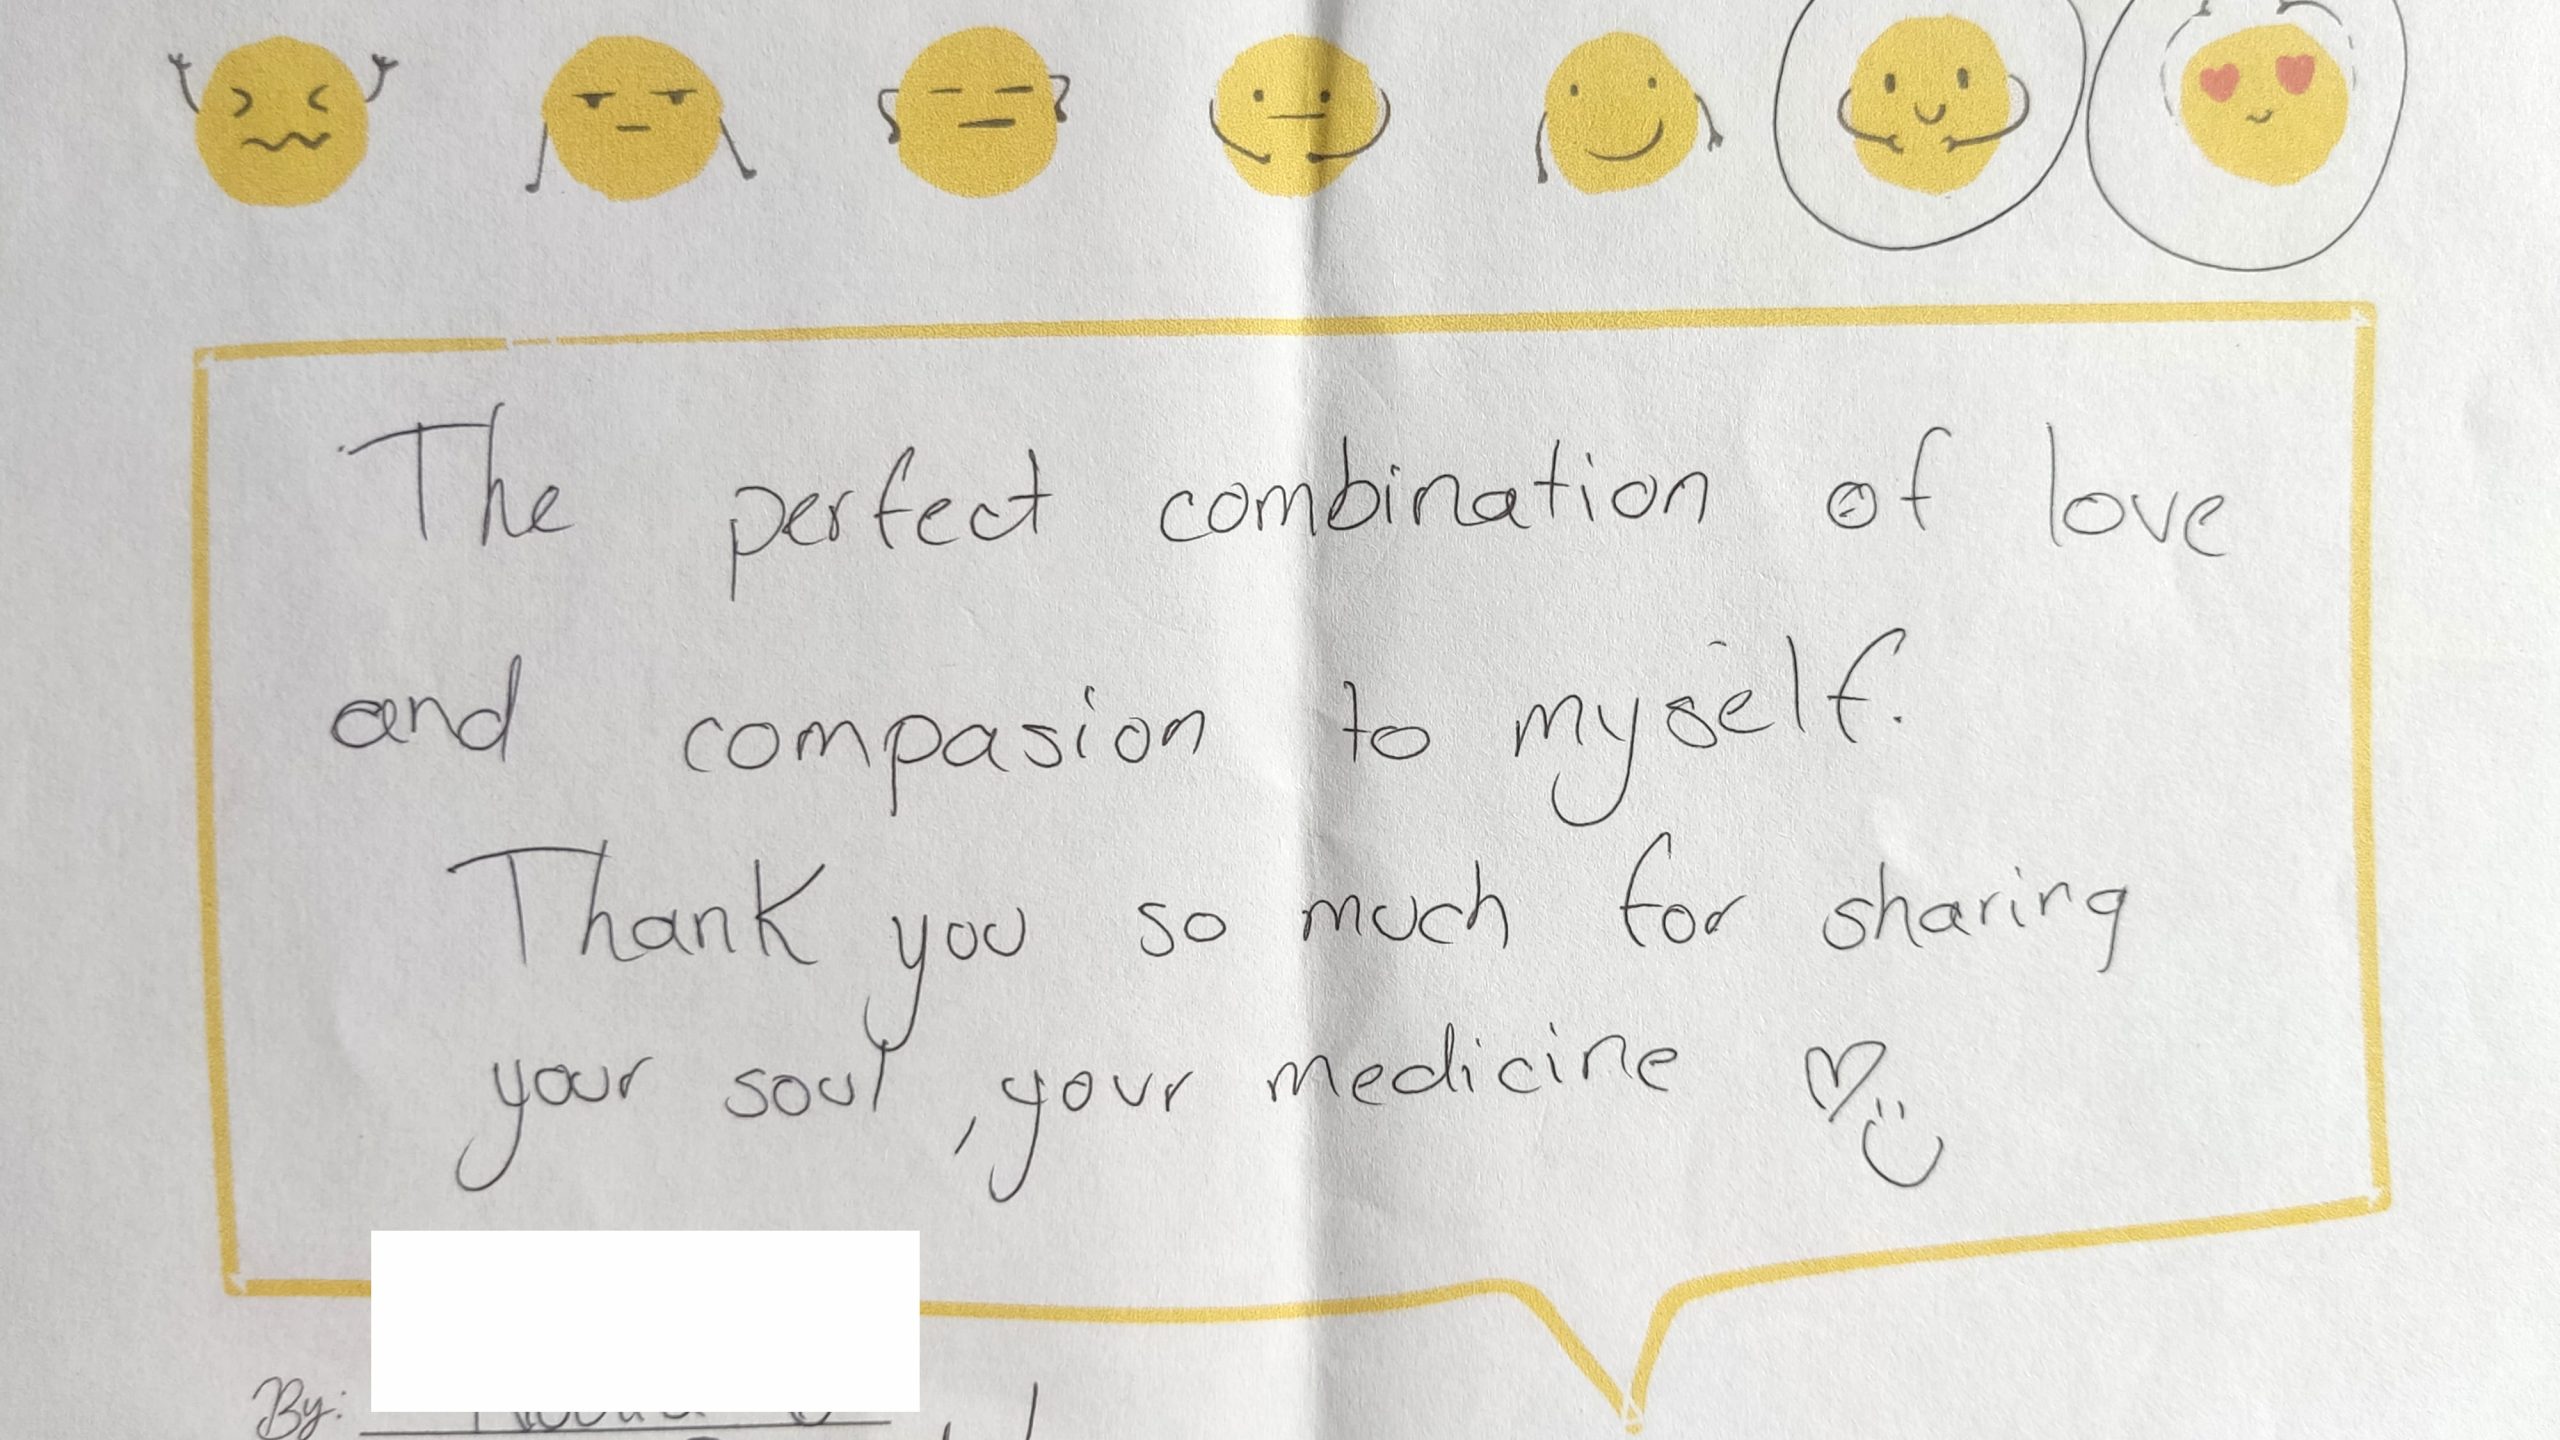 The perfect combination of love
and compasion to myself.
Thank you so much for sharing
your soul, your medicine
By: